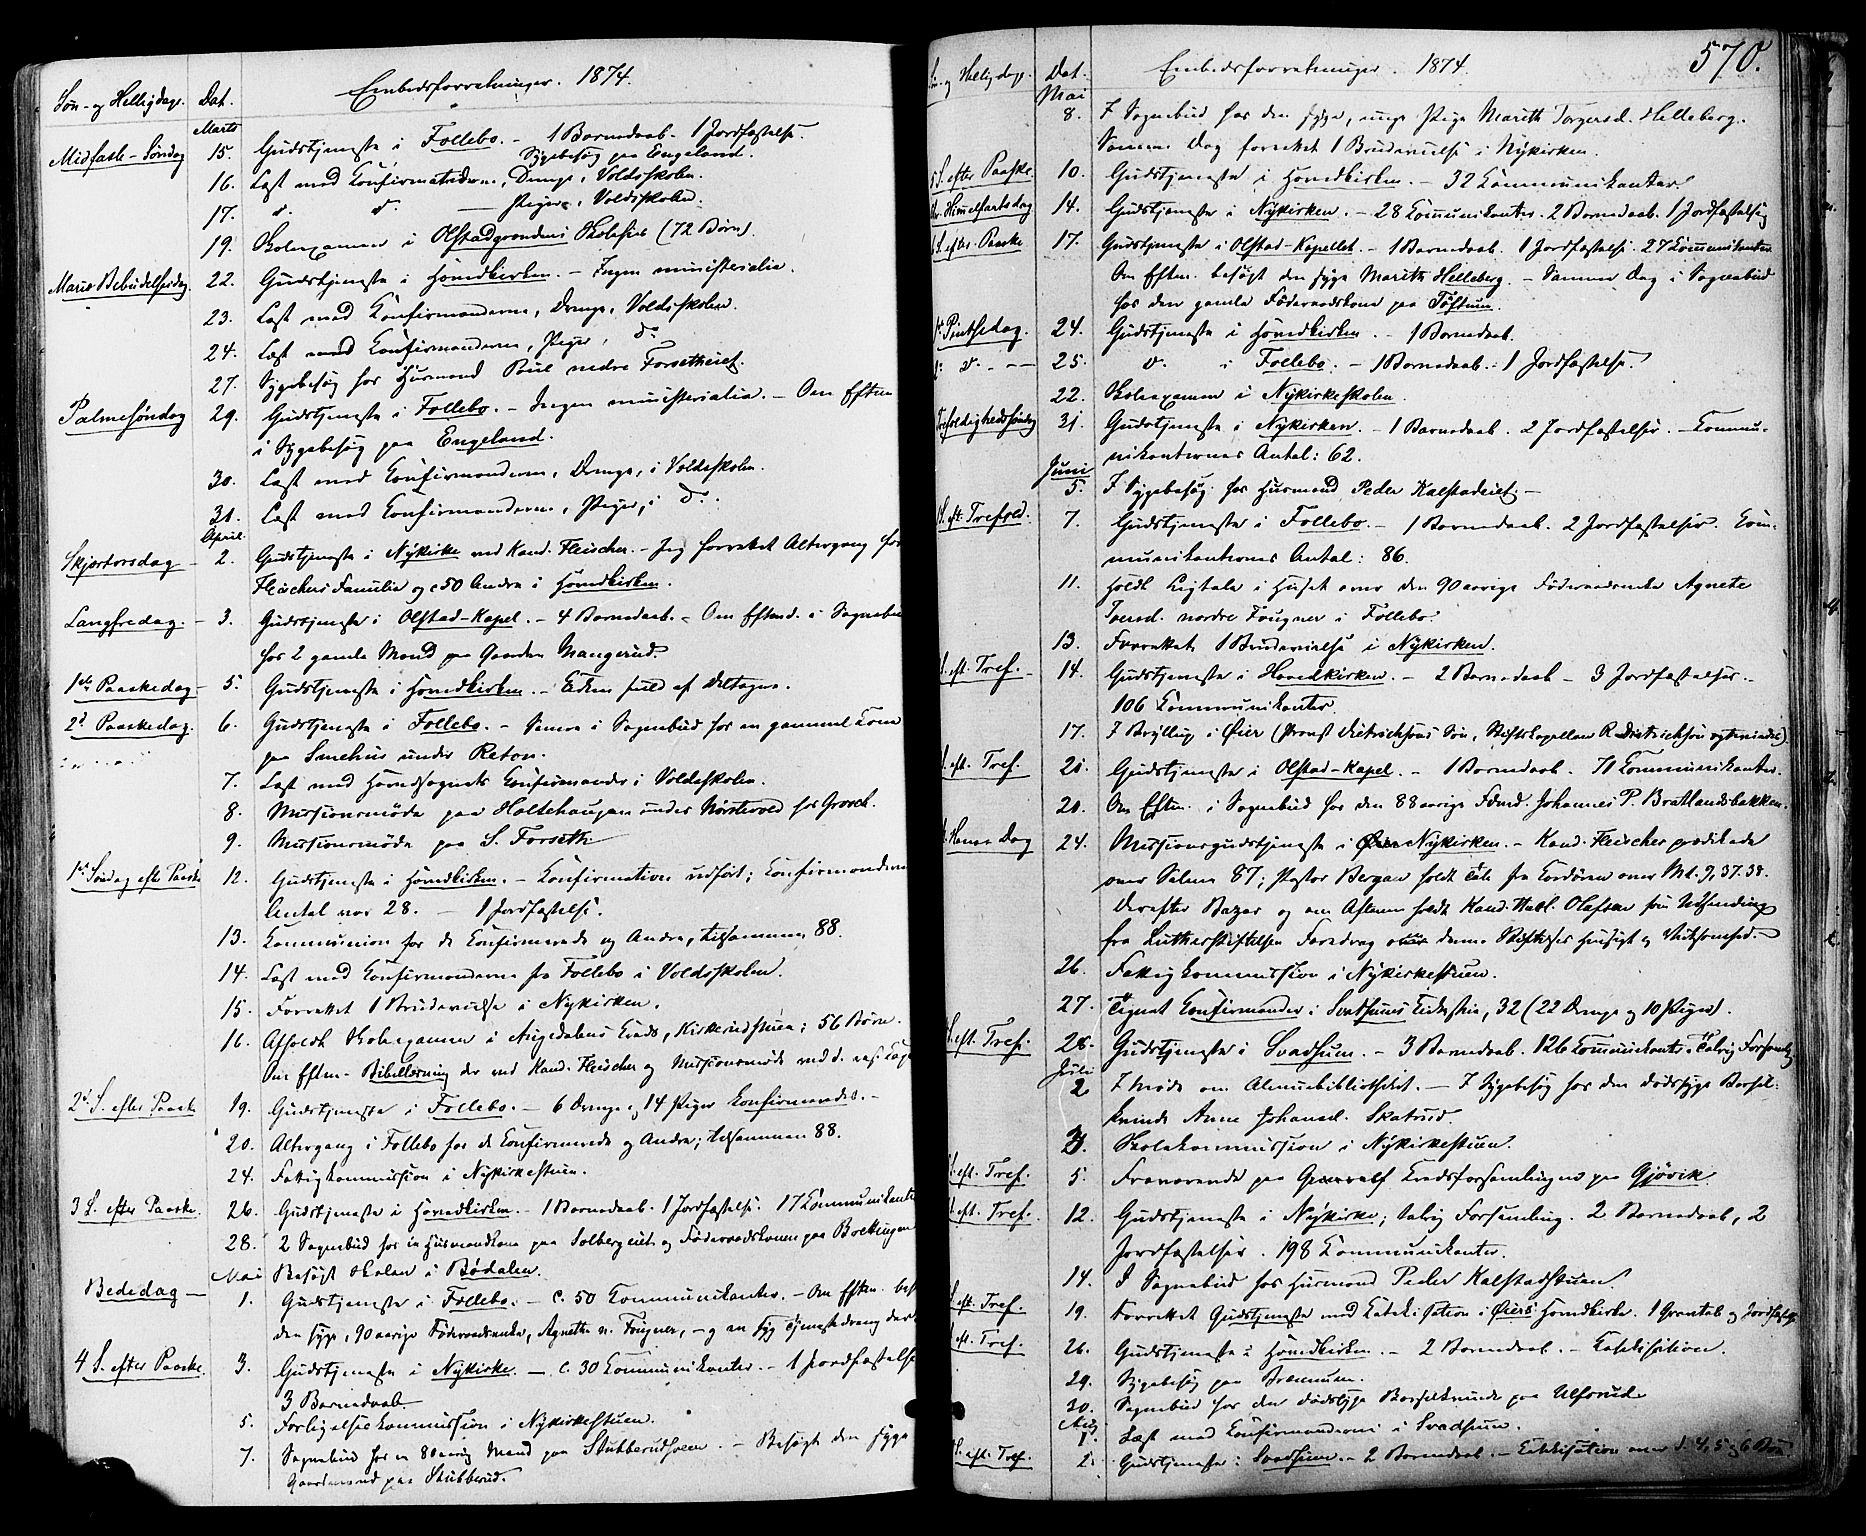 Søn- og Helligdage. Dat. Embedsforretninger. 1874.
Marts
Midfaste-Søndag 15. Gudstjeneste i Follebo. - 1 Barnedaab - 1 Jordfæstelse.
Sygebesøg paa Engeland.
16. Læst med Konfirmanderne, Drenge, Voldsskolen.
17. d. d. — Piger, Voldsskolen.
19. Skoleexamen i Olstadgrendens Skolestue (72 Børn).
Mariæ Bebudelsesdag 22. Gudstjeneste i Hovedkirken. - Ingen ministerialia.
23. Læst med Konfirmanderne, Drenge, Voldsskolen.
24. Læst med Konfirmanderne, Piger, d.
27. Sygebesøg hos Husmand Poul nedre Forsetheiet.
Palmesøndag 29. Gudstjeneste i Follebo. - Ingen ministerialia. - Om Efterm
i Sygebesøg paa Engeland.
30. Læst med Konfirmanderne, Drenge, i Voldsskolen.
31. Læst med Konfirmanderne, Piger, i d.
April.
Skjærtorsdag - 2. Gudstjeneste i Nykirke ved Kand. Fleischer. - Jeg forrettet Altergang for
Fleischers Familie og c. 50 Andre i Hovedkirken.
Langfredag. - 3. Gudstjeneste i Olstad-Kapel. - 4 Barnedaab. - Om Efterm. i Sognebud
hos 2 gamle Mænd paa Gaarden Mangerud.
1ste Paaskedag - 5. Gudstjeneste i Hovedkirken. - Liden fuld af Deltagere.
2d Paaskedag. 6. Gudstjeneste i Follebo. - Senere i Sognebud for en gammel Kone
paa Smehus under Reton.
7. Læst med Hovedsognets Konfirmander i Voldsskolen.
8. Missionsmøde paa Holtehaugen under Nørstevold hos Grosch.
9. Missionsmøde paa S. Forseth.
1ste Søndag efter Paaske 12. Gudstjeneste i Hovedkirken. - Konfirmation udført; Konfirmandernes
Antal var 28. - 1 Jordfæstelse.
13. Kommunion for de Konfirmerede og Andre, tilsammen 88.
14. Læst med Konfirmanderne fra Follebo i Voldsskolen.
15. Forrettet 1 Brudevielse i Nykirken.
16. Afholdt Skoleexamen i Augedalens Kreds, Kirkerudstuen; 56 Børn.
Om Efterm. Bibellæsning der ved Kand. Fleischer og Missionsmøde ved d.
2d S. efter Paaske 19. Gudstjeneste i Follebo. - 6 Drenge og 14 Piger konfirmeredes. -
20. Altergang i Follebo for de Konfirmerede og Andre; tilsammen 88.
24. Fattigkommission i Nykirkestuen.
3 S. efter Paaske. 26. Gudstjeneste i Hovedkirken. - 1 Barnedaab. 1 Jordfæstelse. 17 Kommunikanter
28. 2 Sognebud hos en Husmandkone paa Solbergeiet og Føderaadskonen paa Brekkingen
Mai Besøgt Skolen i Bødalen.
Bededag - 1. Gudstjeneste i Follebo. - c. 50 Kommunikanter. - Om Efterm. bes
den syge, 90 aarige Føderaadsenke, Agnethe n. Fougner, - og en syg Tjenestedreng der
4 S. efter Paaske. 3. Gudstjeneste i Nykirke. - c. 30 Kommunikanter. - 1 Jordfæstelse
3 Barnedaab.
5. Forligelseskommission i Nykirkestuen.
7. Sognebud hos en 80 aarig Mand paa Stubberudsveen. - Besøgt den syge
Gaardmand paa Stubberud.
570.
Søn- og Helligdage. Dat. Embedsforretninger. 1874.
Mai
8. I Sognebud hos den syge, unge Pige Marith Torgersd. Helleberg.
Samme Dag forrettet 1 Brudevielse i Nykirken.
5 S. efter Paaske. 10. Gudstjeneste i Hovedkirken. - 32 Kommunikanter.
Himmelfartsdag 14. Gudstjeneste i Nykirken. - 28 Kommunikanter. 2 Barnedaab. 1 Jordfæstelse
S. efter Paaske 17. Gudstjeneste i Olstad-Kapellet. - 1 Barnedaab. 1 Jordfæstelse. 27 Kommunikanter
Om Efterm. besøgt den syge Marith Helleberg. - Samme Dag i Sognebud
hos den gamle Føderaadskone paa Toftum.
1ste Pintsedag. 24. Gudstjeneste i Hovedkirken. - 1 Barnedaab.
2. d. - 25. d. i Follebo. - 1 Barnedaab. 1 Jordfæstelse.
22. Skoleexamen i Nykirkeskolen.
Trefoldighedssøndag 31. Gudstjeneste i Nykirken. - 1 Barnedaab. 2 Jordfæstelser. - Kommu-
nikanternes Antal: 62.
Juni
5. I Sygebesøg hos Husmand Peder Kalstadeiet. -
S. eft. Trefold. 7. Gudstjeneste i Follebo. - 1 Barnedaab. 2 Jordfæstelser. Kom-
munikanternes Antal: 86.
11. Holdt Ligtale i Huset over den 90 aarige Føderaadsenke Agnete
Iversd. nordre Fougner i Follebo.
13. Forrettet 1 Brudevielse i Nykirken.
S. eft. Tref. - 14. Gudstjeneste i Hovedkirken. - 2 Barnedaab - 3 Jordfæstelser. -
106 Kommunikanter.
17. I Bryllup i Øier (Provst Dietrichsons Søn, Stiftskapellan R. Dietrichson
S. eft. Tref. 21. Gudstjeneste i Olstad-Kapel. - 1 Barnedaab. 71 Kommunikanter.
20. Om Efterm. i Sognebud hos den 88 aarige Fdmd. Johannes P. Bratlandsbakken.
St. Hans Dag 24. Missionsgudstjeneste i Nykirken. - Kand. Fleischer prædikede
over Salme 87; Pastor Bergan holdt Tale fra Kordøren over Mt. 9, 37. 38.
Derefter Bazar og om Aftenen holdt Kand. theol. Olafsen som Udsending
fra Lutherstiftelsen Foredrag over denne Stiftelses Hensigt og Virksomhed.
26. Fattigkommission i Nykirkestuen.
27. Tegnet Konfirmander i Svatsums Kirkestue, 32 (22 Drenge og 10 Piger).
S. eft. Tref. 28. Gudstjeneste i Svadsum. - 3 Barnedaab. 126 Kommunikanter. Talrig Forsamling
Juli
2 I Møde om Almuebibliotheket. - I Sygebesøg hos den dødssyge Barsel-
kvinde Anne Johansd. Skatrud.
3. Skolekommission i Nykirkestuen.
S. eft. Tref. 5. Fraværende paa Kredsforsamlingen paa Gjøvik.
S. eft. Tref. 12. Gudstjeneste i Nykirke; talrig Forsamling. 2 Barnedaab, 2
Jordfæstelser. 198 Kommunikanter.
14. I Sognebud hos Husmand Peder Kalstadstuen.
S. eft. Tref. 19. Forrettet Gudstjeneste med Katekisation i Øiers Hovedkirke. 1 Jordfæst.
S. eft. Tref. 26. Gudstjeneste i Hovedkirken. - 2 Barnedaab. - Katekisation.
29. Sygebesøg paa Bræmum.
30. Sognebud hos den dødssyge Barselkvinde paa Ulsrud.
Aug.
1. Læst med Konfirmanderne i Svadsum.
S. eft. Tref. 2. Gudstjeneste i Svadsum. - 2 Barnedaab. - Katekisation over d. 4, 5 og 6 Bøn.